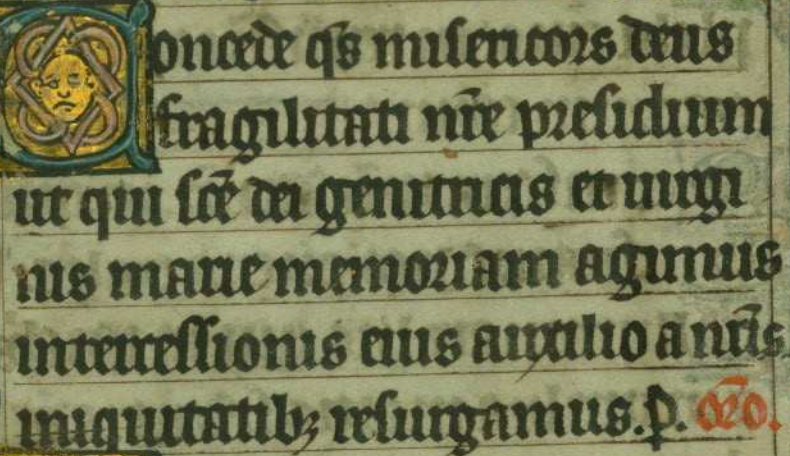 Concede q̄s misericors deus
fragilitati nr̄e presidium
ut qui sc̄e dei genitricis et uirgi
nis marie memoriam agimus
intercessionis eius auxilio a nr̄is
iniquitatibꝫ resurgamus. p. or̄o.